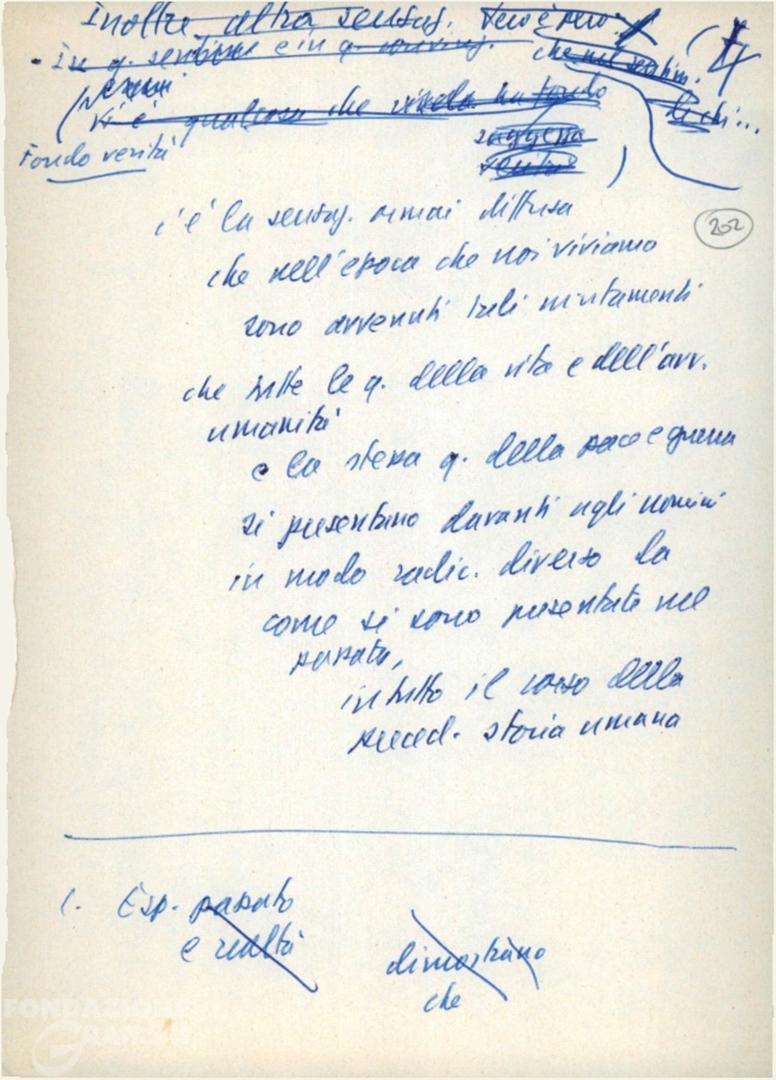 Inoltre altra sensaz. Vero è
- In q. sentire e in q. che nel sentim.
Vi è qualcosa che fondo
di chi...
Fondo verità
suggerisce
c'è la sensaz. ormai diffusa
202
che nell'epoca che noi viviamo
sono avvenuti tali mutamenti
che tutte le q. della vita e dell'avv.
umanità
e la stessa q. della pace e guerra
si presentano davanti agli uomini
in modo radic. diverso da
come si sono presentate nel
passato,
in tutto il corso della
preced. storia umana
1. Esp. passato
e realtà
dimostrano
che
FONDAZIONE
GRAMSCI